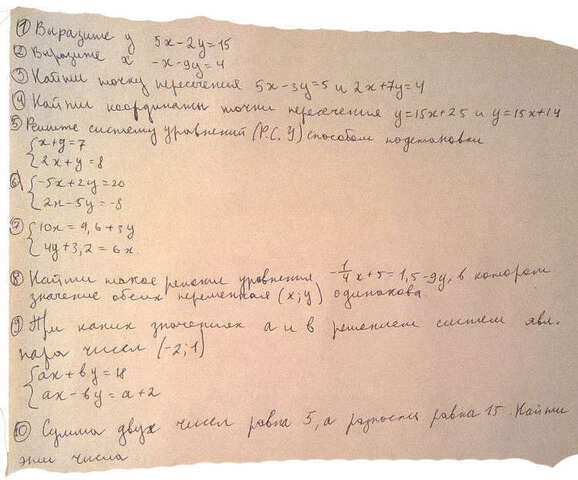 ① Выразите y 5x-2y=15
② Выразите x -x-9y=4
③ Найти точку пересечения 5x-3y=5 и 2x+7y=4
④ Найти координаты точки пересечения y=15x+25 и y=15x+14
⑤ Решите систему уравнений (Р.С.У) способом подстановки
{x+y=7
{2x+y=8
⑥ {-5x+2y=20
{2x-5y=-8
⑦ {10x=4,6+3y
{4y+3,2=6x
⑧ Найти такое решение уравнения -1/4x+5=1,5-9y, в котором
значение обеих переменная (x;y) одинакова
⑨ При каких значениях a и в решением систем явл.
пара чисел (-2;1)
{ax+by=18
{ax-by=a+2
⑩ Сумма двух чисел равна 5, а разность равна 15. Найти
эти числа